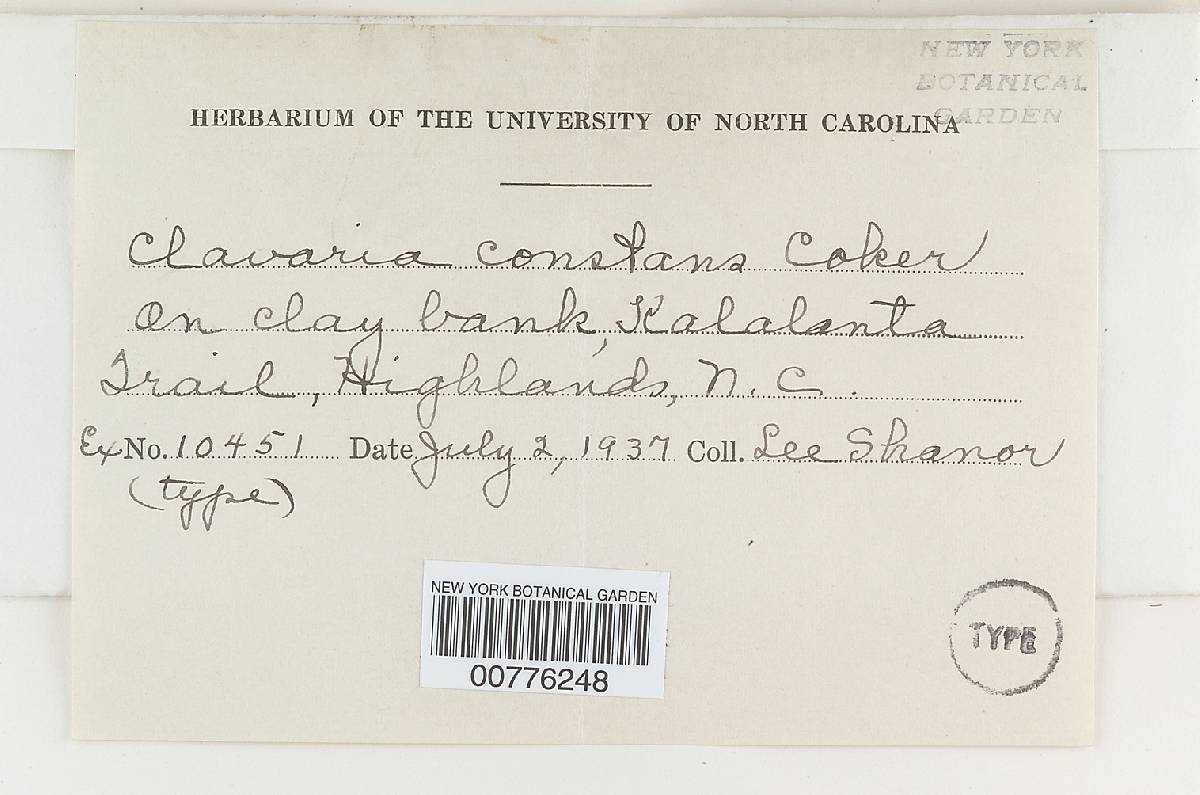 NEW YORK
BOTANICAL
GARDEN
HERBARIUM OF THE UNIVERSITY OF NORTH CAROLINA
Clavaria constans Coker
On clay bank, Kalalanta
Trail, Highlands, N.C.
Ex No. 10451 Date July 2, 1937 Coll. Lee Shanor
(type)
NEW YORK BOTANICAL GARDEN
00776248
TYPE